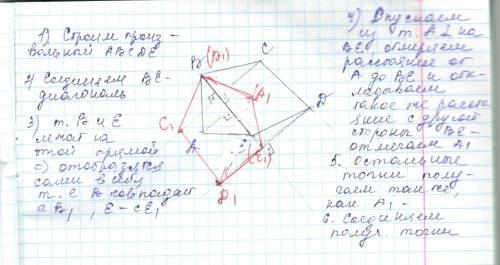 1) Строим произ-
вольный ABCDE
2) Соединяем BE-
диагональ
3) т. B и E
лежат на
этой прямой
⇒ отобразятся
сами в себя
т.е B совпадает
с B₁, E – с E₁
B(B₁)
C
A₁
D
C₁
A
E
(E₁)
D₁
4) Опускаем
из т. A ⊥ на
BE отмеряем
расстояние от
A до BE и отк-
ладываем
такое же расстоя
яние с другой
стороны BE-
отмечаем A₁
5. Остальные
точки полу-
чаем так же,
как A₁.
6. Соединяем
получ. точки